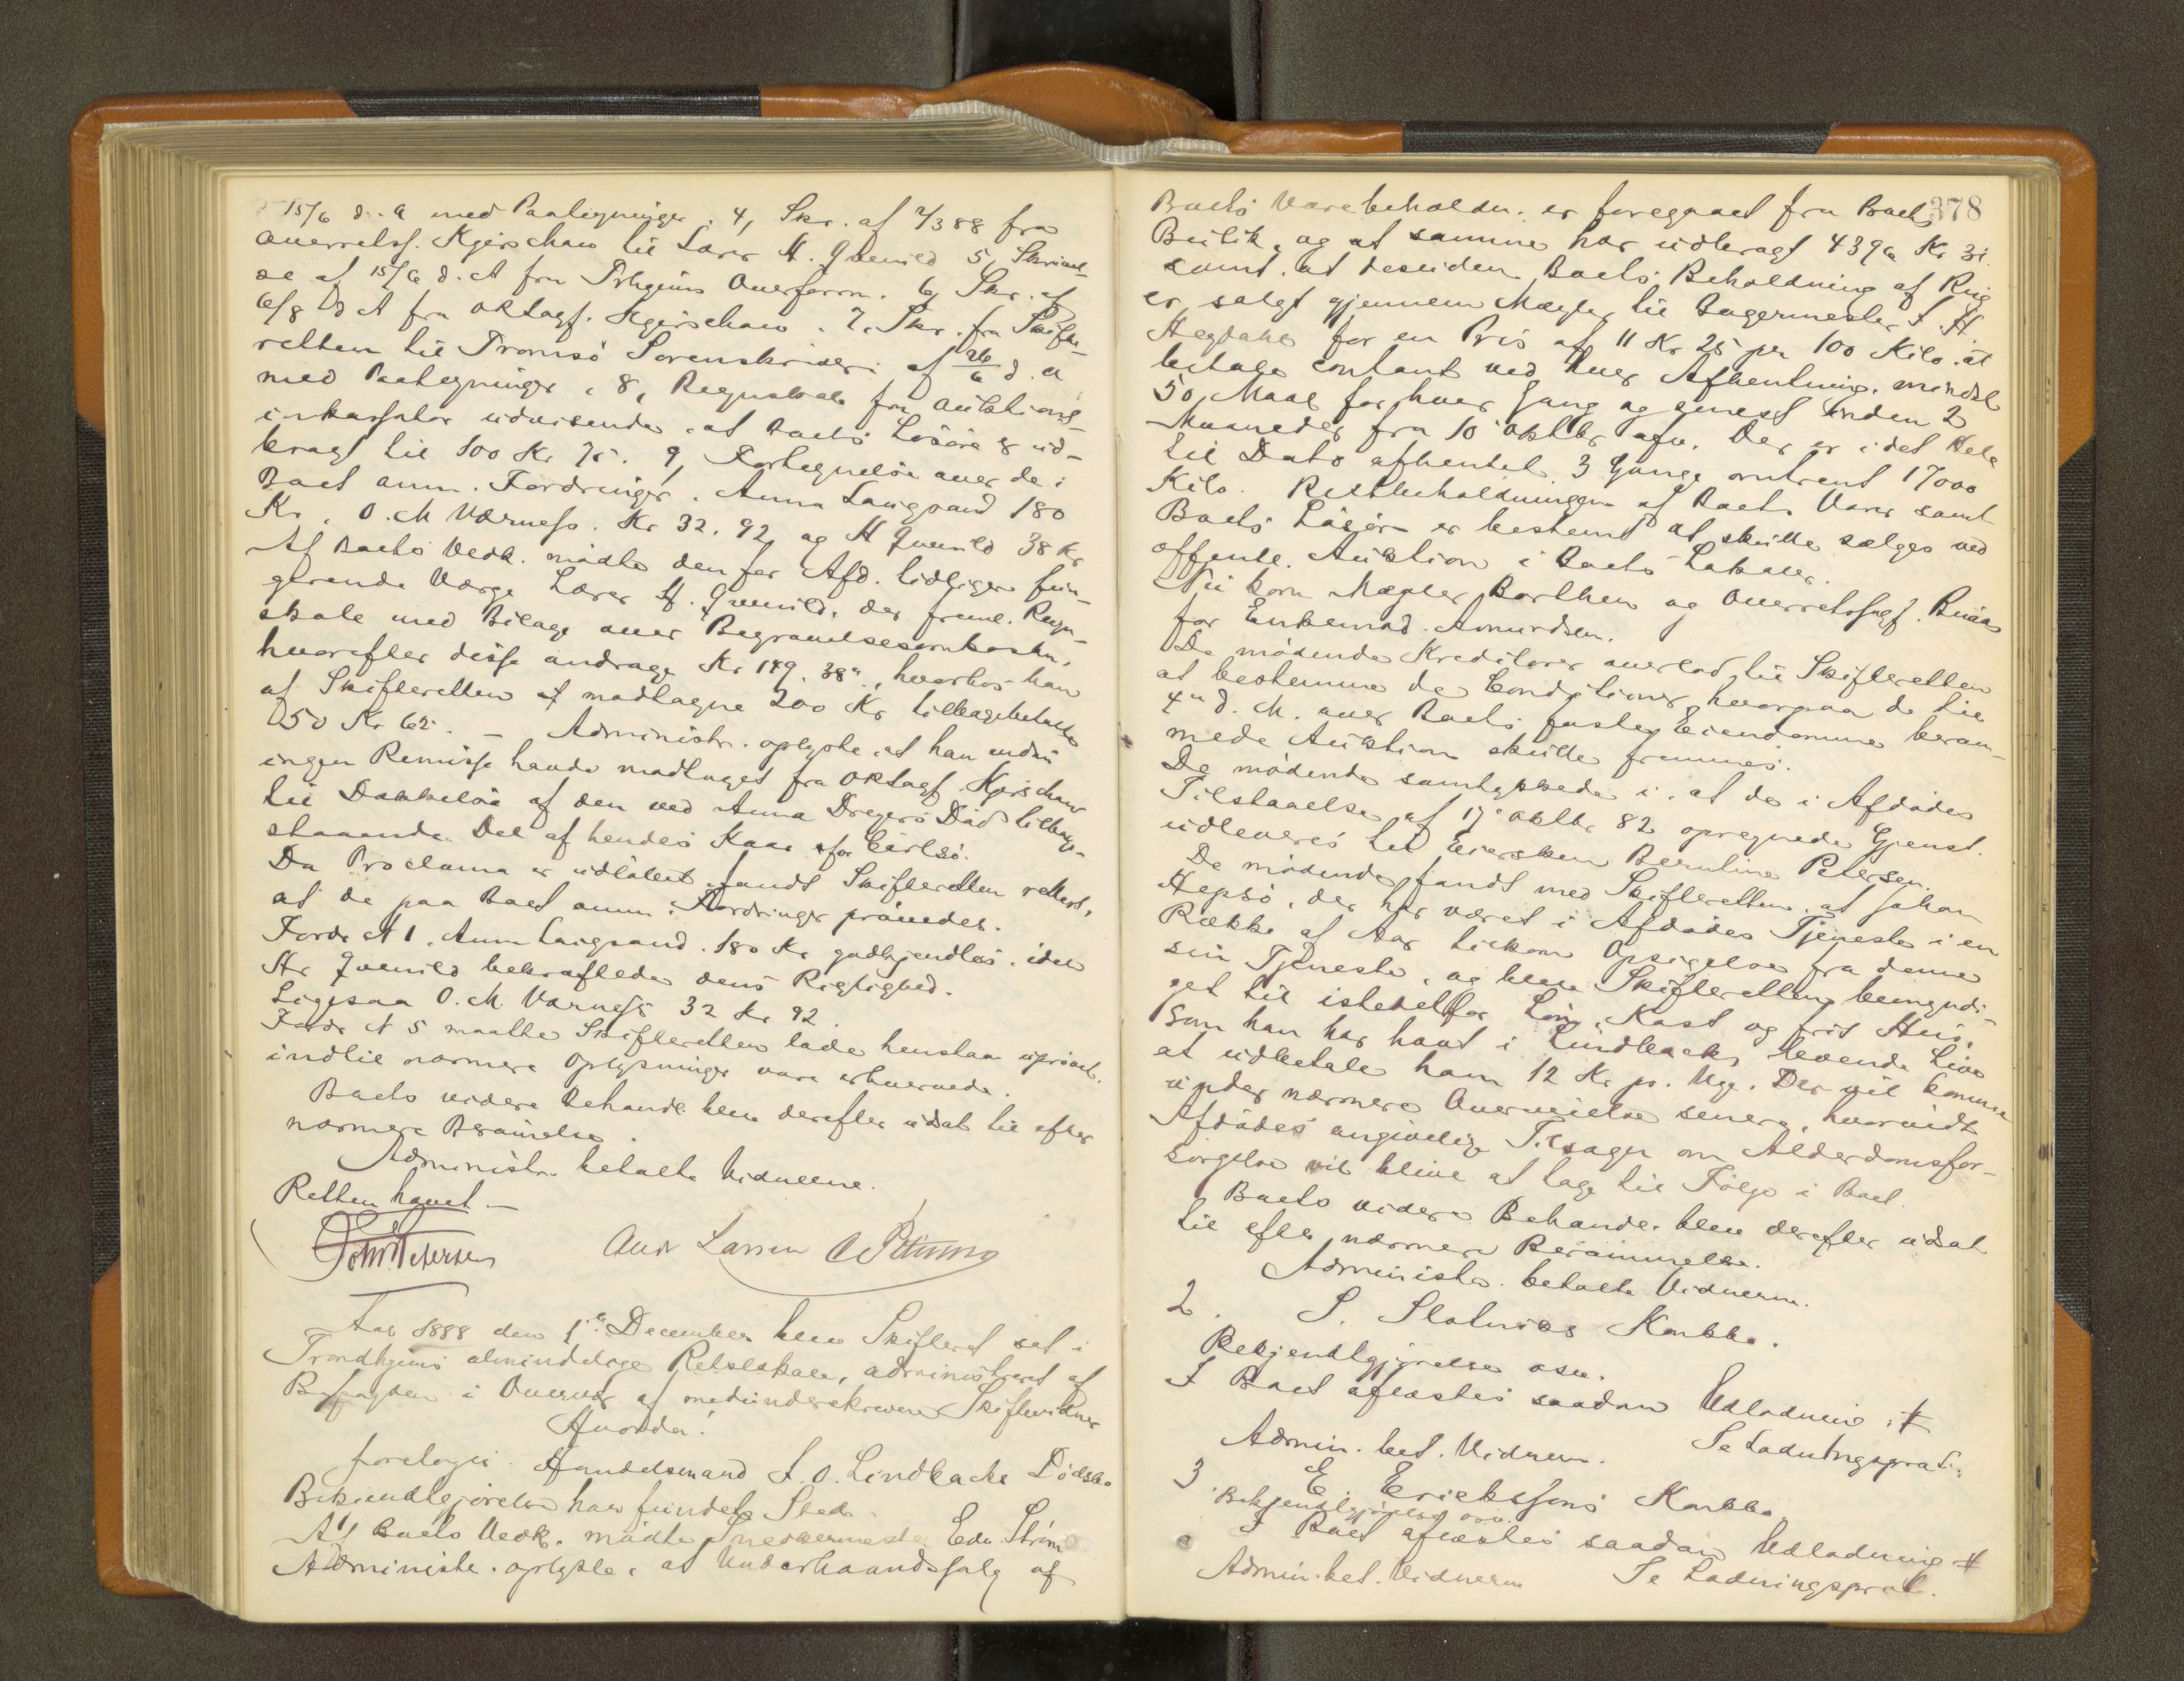 15/6 d. A med Paategninger. 4, Skr. af 2/3 88 fra
Overretssf. Kjerschow til Lærer H. Qvenild 5, Skrivel-
se af 15/6 d. A fra Trhjems Overform. 6, Skr. af
6/8 d A fra ORsagf. Kjerschow. 7, Skr. fra Skifte-
retten til Tromsö Sorenskriveri af 26/6 d. A
med Paategninger, 8, Regnskab fra Auktions-
inkassator udvisende, at Boets Lösöre er ud-
bragt til 100 Kr 75. 9, Fortegnelse over de i
Boet anm. Fordringer. Anna Langsand 180
Kr, O. M Værness. Kr 32. 92, og H Qvenild 38 Kr
Af Boets Vedk. mödte den for Afd. tidligere fun-
gerende Værge Lærer H. Qvenild, der freml. Regn-
skab med Bilage over Begravelsesomkostn,
hvorefter disse androge Kr 149. 38", hvorhos han
af Skifteretten af modtagne 200 Kr tilbagebetalte
50 Kr 62. – Administr. oplyste, at han endnu
ingen Remisse havde modtaget fra ORsagf Kjerschow
til Dækkelse af den ved Anna Dreyers Död tilbage-
staaende Del af hendes Kaar for Carlsö.
Da Proclama er udlöbet fandt Skifteretten rettest,
at de paa Boet anm. Fordringer prövedes.
Fordr N 1. Anna Langsand. 180 Kr godkjendtes, idet
Hr Qvenild bekræftede dens Rigtighed.
Ligesaa O. M. Værness 32 Kr 92
Fordr N 5 maatte Skifteretten lade henstaa uprövet,
indtil nærmere Oplysninger vare erhvervede.
Boets videre Behandl. blev derefter udsat til efter
nærmere Berammelse.
Administr. betalte Vidnerne.
Retten hævet. –
Andr Larsen
Aar 1888 den 1ste December blev Skifteret sat i
Trondhjems almindelige Retslokale, administreret af
Byfogden i Overvær af medunderskrevne Skiftevidner
Hvorda!
foretoges. Handelsmand I. O. Lindbacks Dödsbo
Bekjendtgjörelse har fundet Sted.
Af Boets Vedk. mödte Snedkermester Edv. Ström
Administr. oplyste, at Underhaandssalg af
378
Boets Varebeholdn. er foregaaet fra Boets
Butik, og at samme har udbragt 4396 Kr 31
samt at desuden Boets Beholdning af Rug
er solgt gjennem Mægler til Bagermester I. H.
Hegdahl for en Pris af 11 Kr 25 pr 100 Kilo at
betale contant ved hver Afhentning, mindst
50 Maal for hver Gang og senest inden 2
Maaneder fra 10 Oktbr afv. Der er i det Hele
til Dato afhentet 3 Gange omtrent 17000
Kilo. Restbeholdningen af Boets Varer samt
Boets Lösöre er bestemt at skulle sælges ved
offentl. Auktion i Boets Lokaler.
Nu kom Mægler Barthen og Overretssagf.
for Enkemad. Amundsen.
De mödende Kreditorer overlod til Skifteretten
at bestemme de Conditioner, hvorpaa de til
4de d. M. over Boets faste Eiendomme beram-
mede Auktion skulle fremmes.
De mödende samtykkede i, at de i Afdödes
Tilstaaelse af 17 Oktbr 82 opregnede Gjenst.
udleveres til Eiersken Berntine Petersen.
De mödende fandt med Skifteretten, at Johan
Hepsö, der har været i Afdödes Tjeneste i en
Række af Aar tilkom Opsigelse fra denne
sin Tjeneste, og blev Skifteretten bemyndi-
get til istedetfor Lön, Kost og frit Hus,
som han har havt i Lindbacks levende Live
at udbetale ham 12 Kr pr. Uge. Der vil komme
under nærmere Overveielse senere, hvorvidt
Afdödes angivelige Tilsagn om Alderdomsfor-
sörgelse vil blive at tage til Fölge i Boet
Boets videre Behandl. blev derefter udsat
til efter nærmere Berammelse.
Administr. betalte Vidnerne.
2. S. Konkbo.
Bekjendtgjörelse osv.
I Boet afsagdes saadan Udlodning: #
Admin. bet. Vidnern. Se Lodningsprot:
3 E. Erickssons Konkbo
Bekjendtgjörelse osv.
I Boet afsagdes saadan Udlodning #
Admin. bet. Vidnerne Se Lodningsprot.